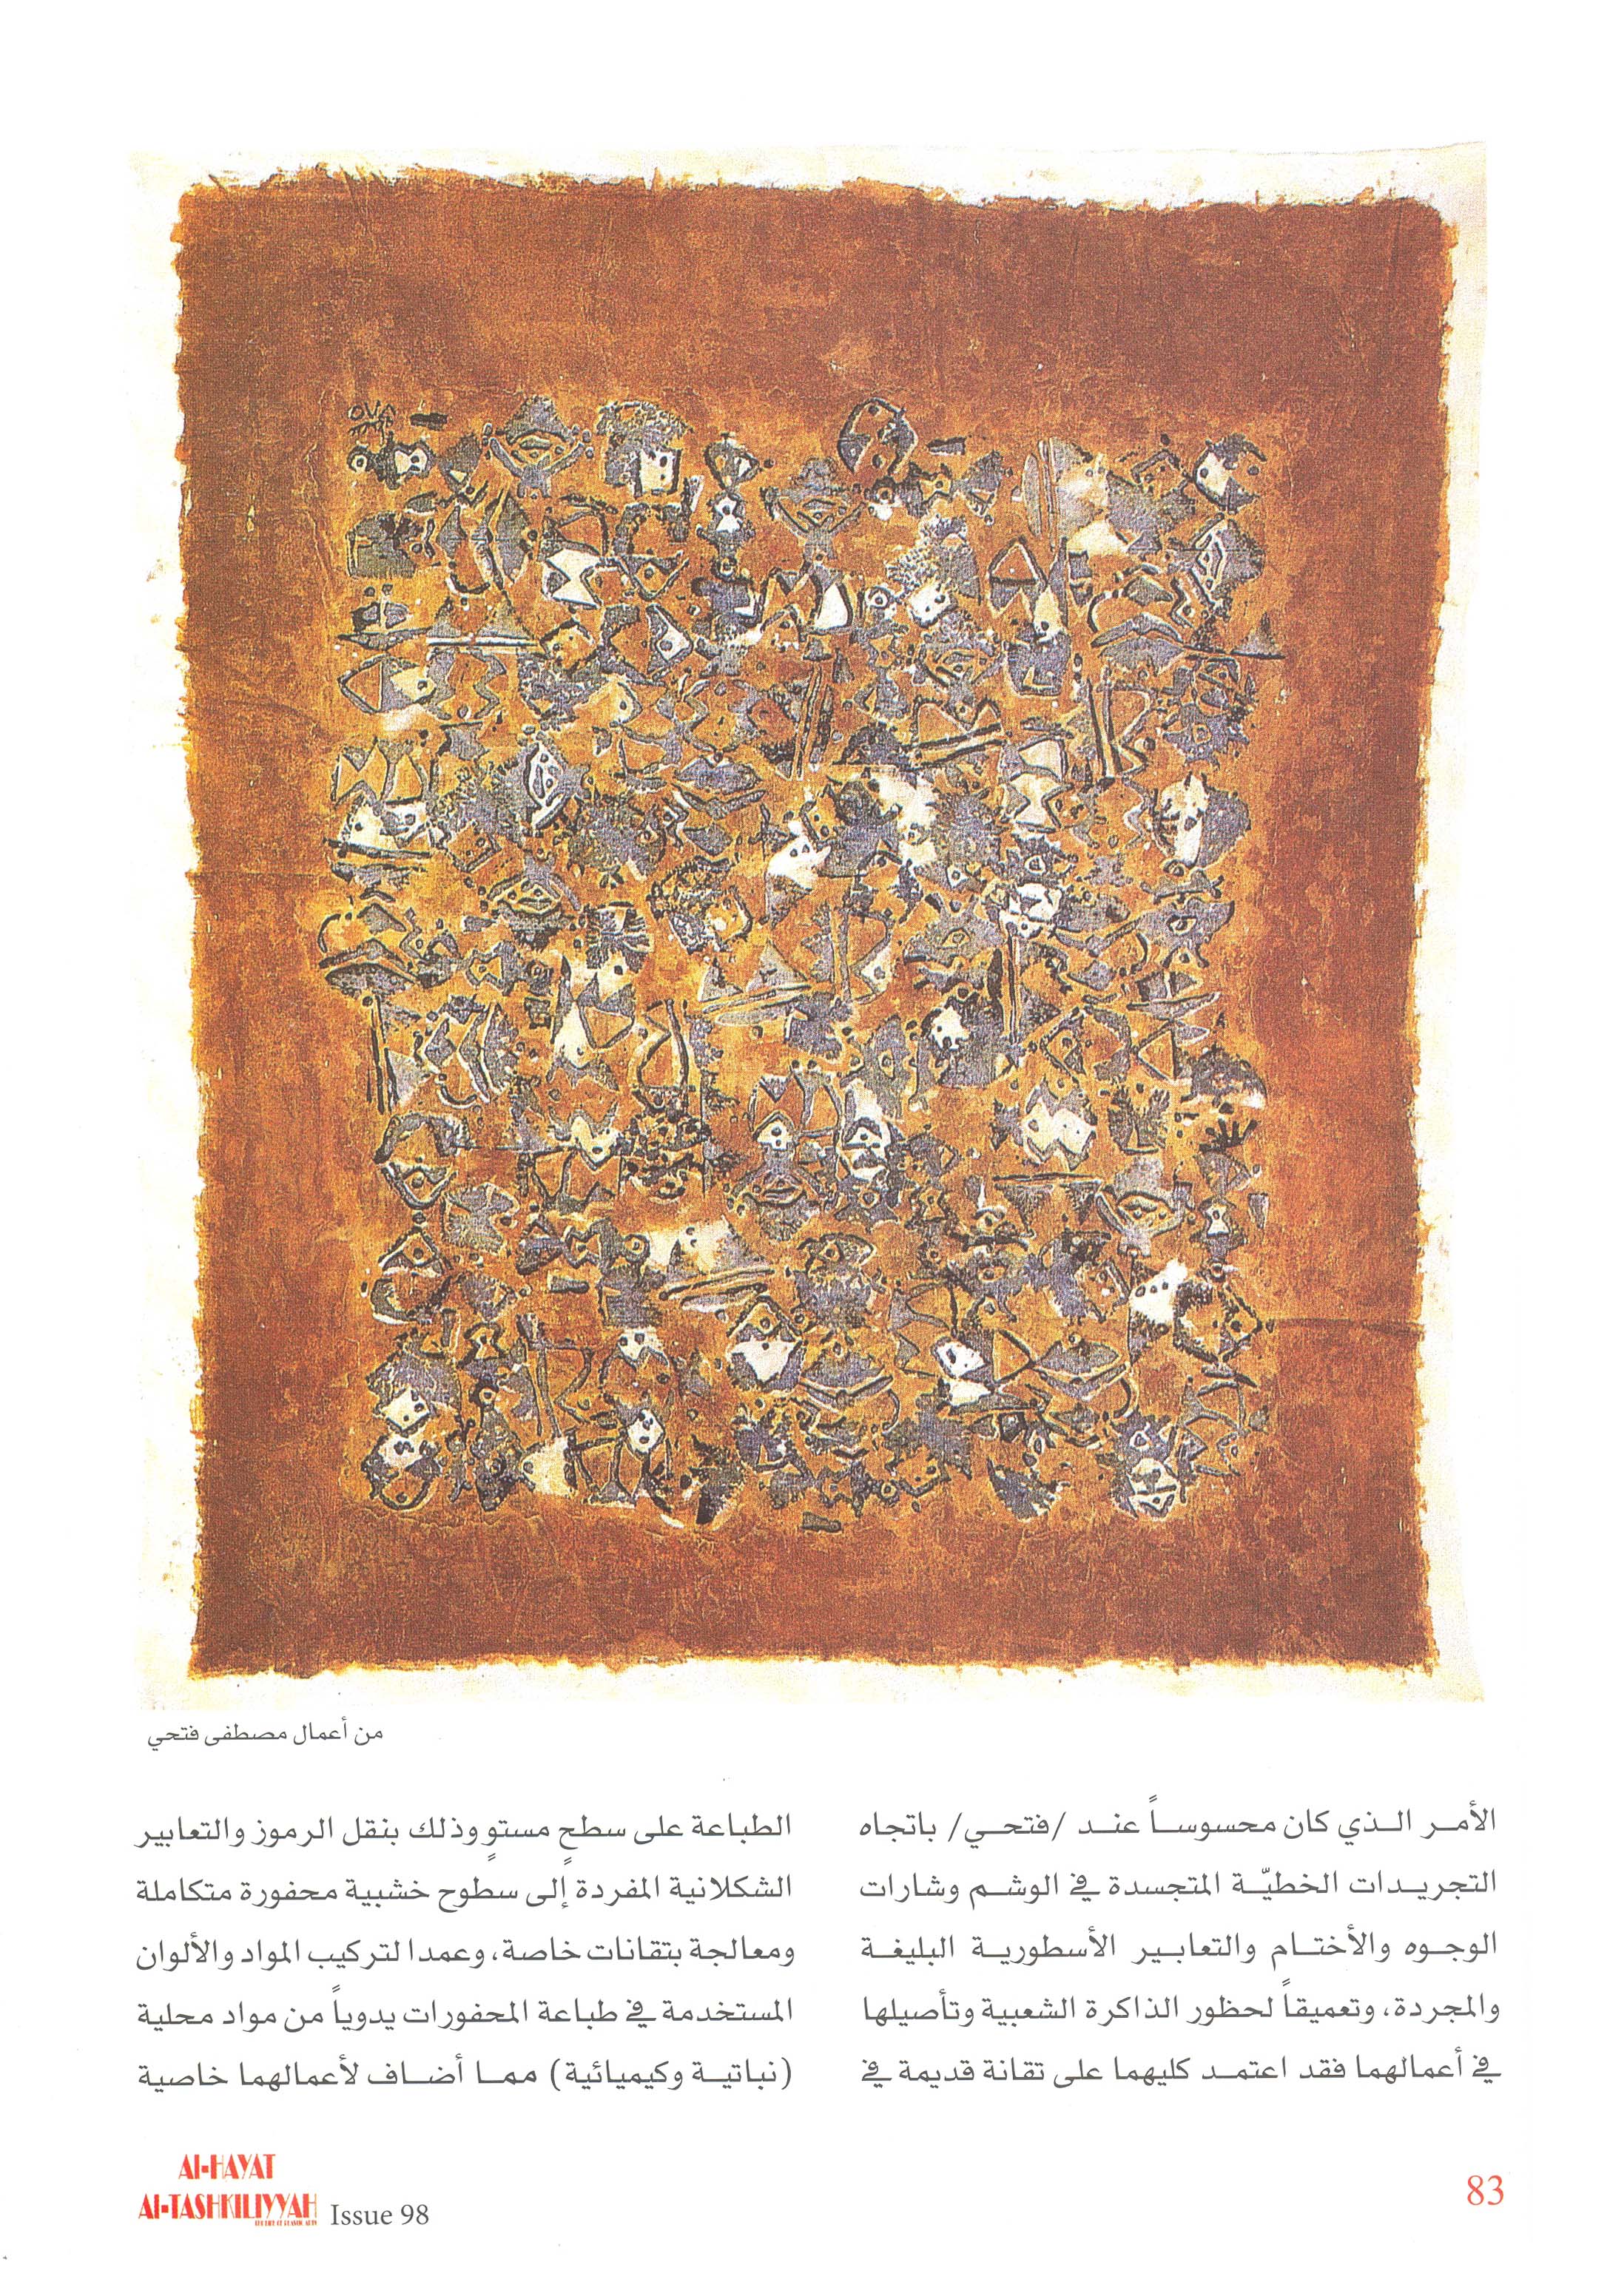 من أعمال مصطفى فتحي
الأمر الذي كان محسوساً عند /فتحي/ باتجاه
التجريدات الخطيّة المتجسدة في الوشم وشارات
الوجوه والأختام والتعابير الأسطورية البليغة
والمجردة، وتعميقاً لحظور الذاكرة الشعبية وتأصيلها
في أعمالهما فقد اعتمد كليهما على تقانة قديمة في
الطباعة على سطحٍ مستوٍ وذلك بنقل الرموز والتعابير
الشكلانية المفردة إلى سطوح خشبية محفورة متكاملة
ومعالجة بتقانات خاصة، وعمدا لتركيب المواد والألوان
المستخدمة في طباعة المحفورات يدوياً من مواد محلية
(نباتية وكيميائية) مما أضاف لأعمالهما خاصية
Al-HAYAT
Al-TASHKILIYYAH Issue 98
83